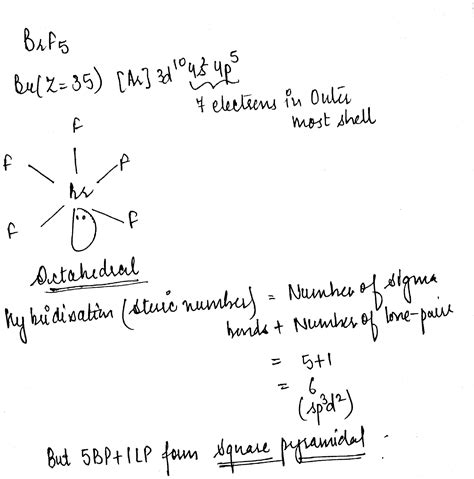 BrF5
Br(Z=35) [Ar] 3d¹⁰ 4s² 4p⁵
7 electrons in Outer
most shell
F
F F
Br
F F
Octahedral
Hybridisation (steric number) = Number of sigma
bonds + Number of lone-pair
= 5+1
= 6
(sp³d²)
But 5BP+1LP form square pyramidal :